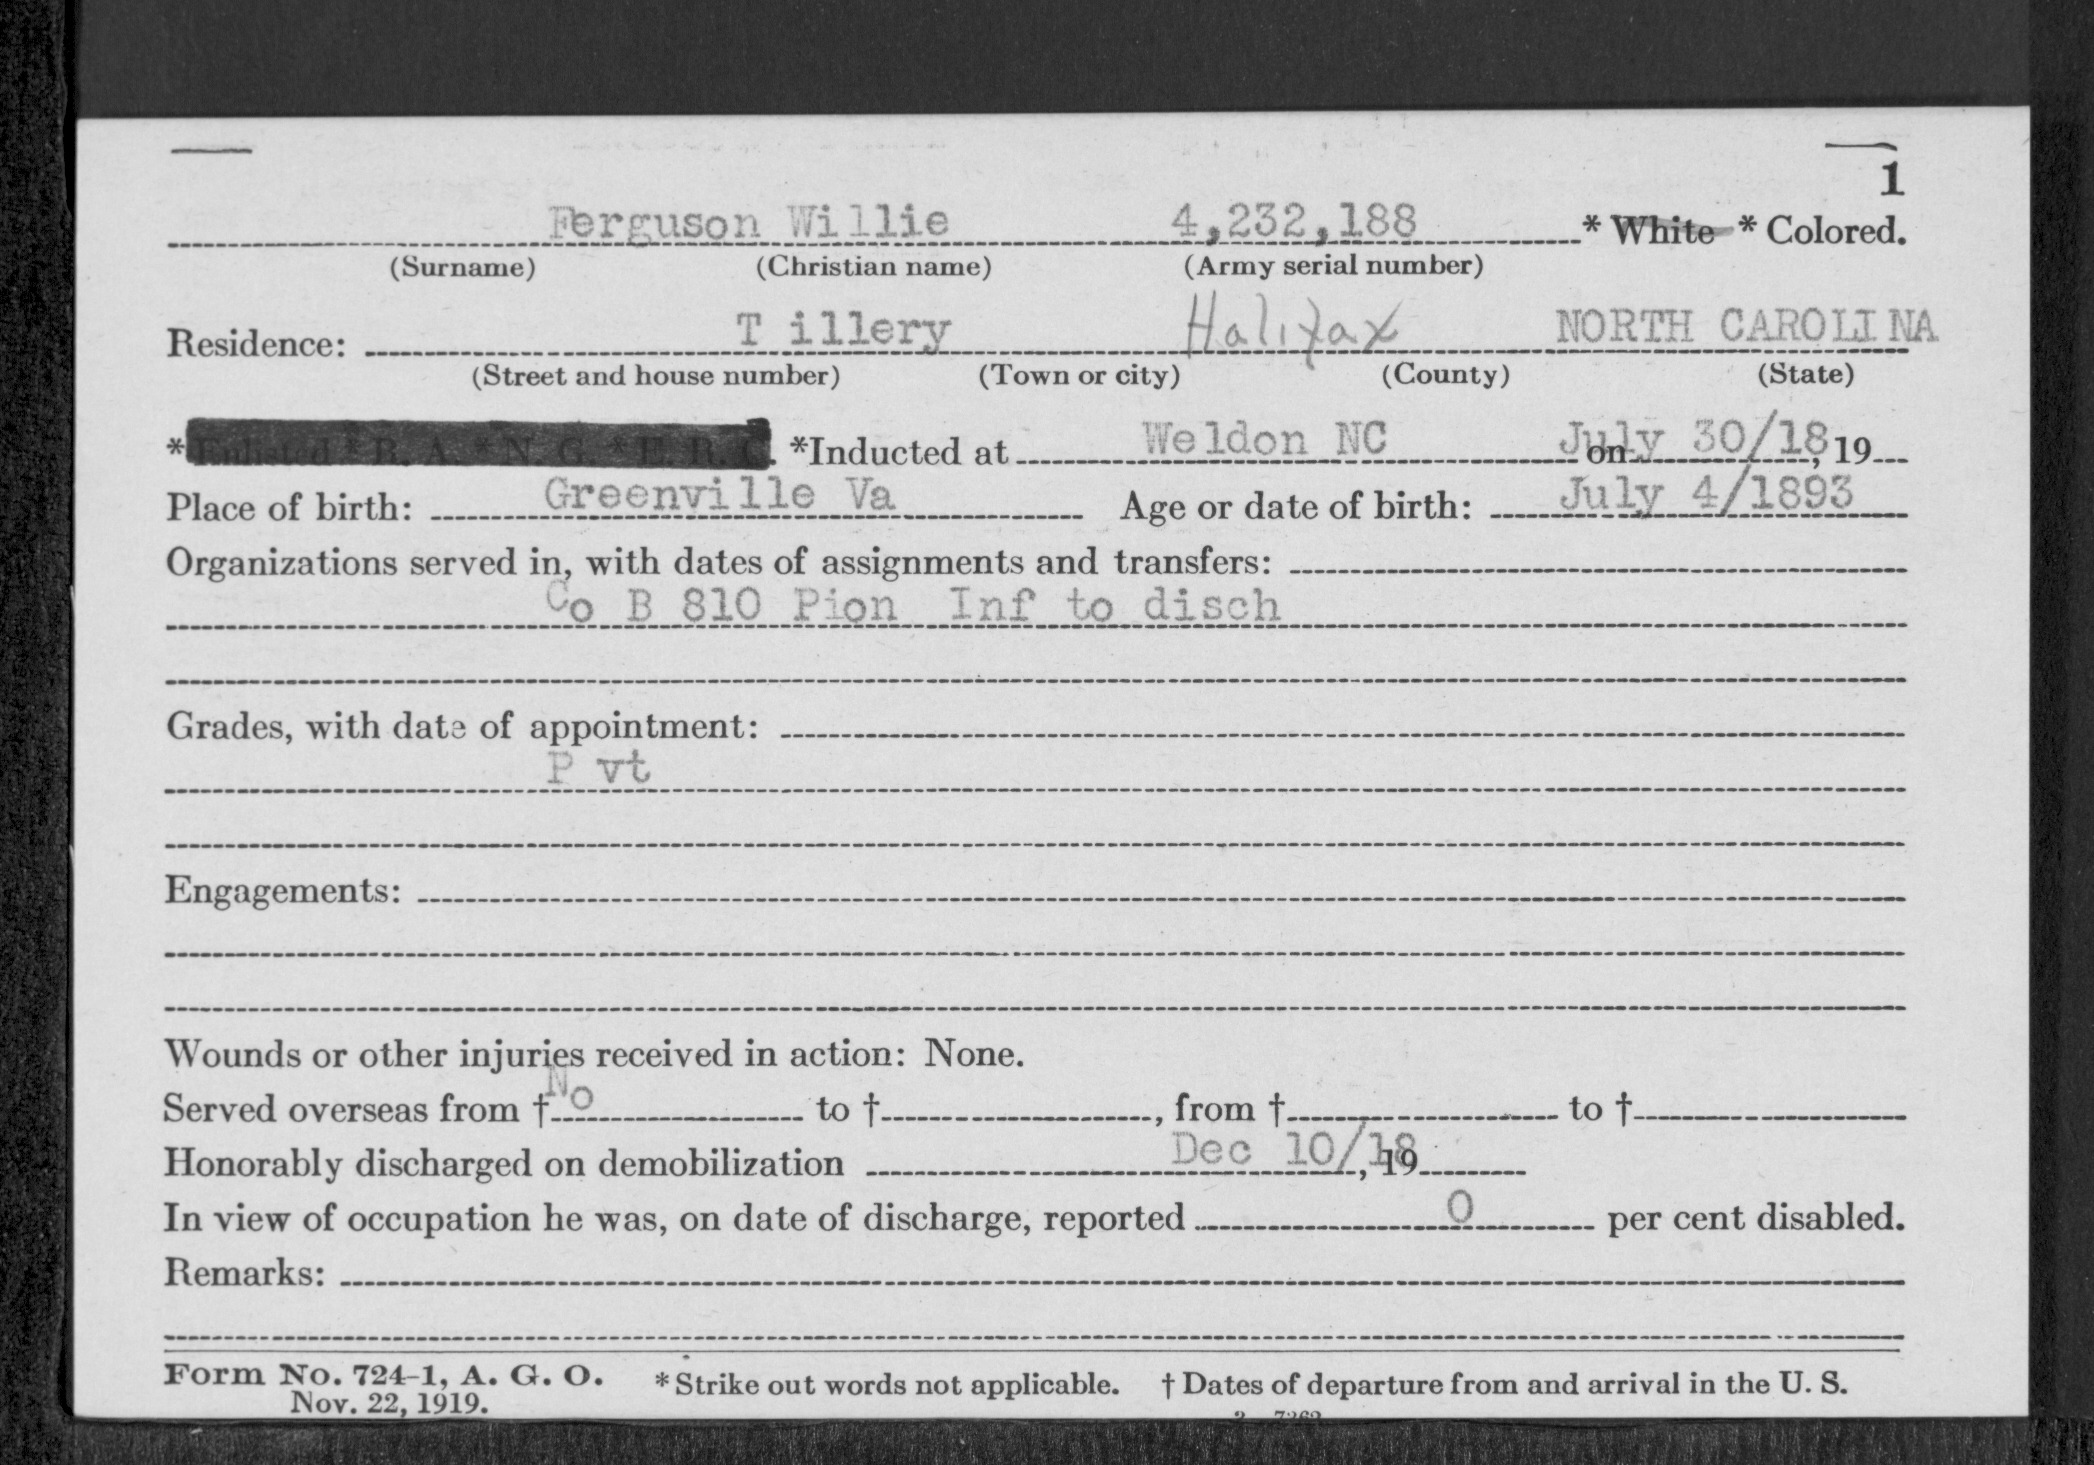 1
Ferguson Willie 4,232,188 * White * Colored.
(Surname) (Christian name) (Army serial number)
Residence: T illery Halifax NORTH CAROLINA
(Street and house number) (Town or city) (County) (State)
* Enlisted * R. A. * N. G. * E. R. C. *Inducted at Weldon NC on July 30/18, 19
Place of birth: Greenville Va Age or date of birth: July 4/1893
Organizations served in, with dates of assignments and transfers:
Co B 810 Pion Inf to disch
Grades, with date of appointment:
P vt
Engagements:
Wounds or other injuries received in action: None.
Served overseas from † No to †, from † to †
Honorably discharged on demobilization Dec 10/18, 19
In view of occupation he was, on date of discharge, reported 0 per cent disabled.
Remarks:
Form No. 724-1, A. G. O. * Strike out words not applicable. † Dates of departure from and arrival in the U. S.
Nov. 22, 1919.